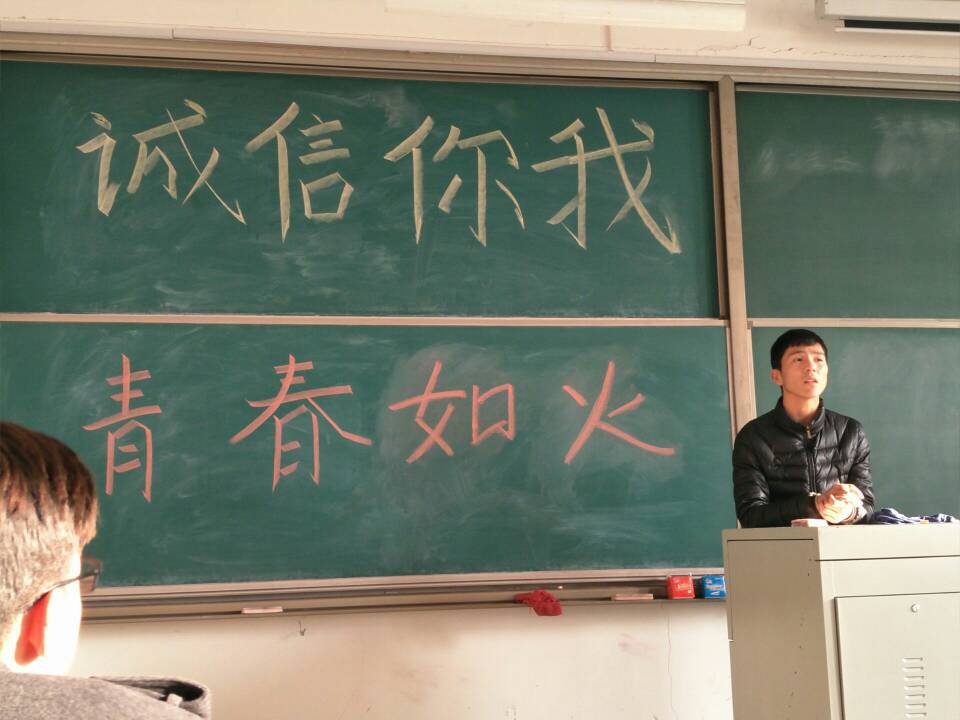 诚信你我
青春如火